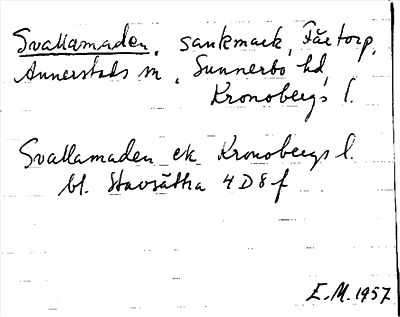 Svallamaden, sankmark, Fårtorp,
Annerstads sn, Sunnerbo hd,
Kronobergs l.
Svallamaden ek Kronobergs l.
bl. Stavsätha 4 D 8 f
E.M. 1957